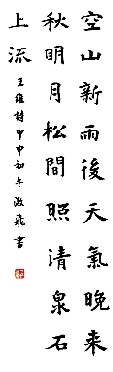 空山新雨後天氣晚来
秋明月松間照清泉石
上流
王維詩甲申初冬
書